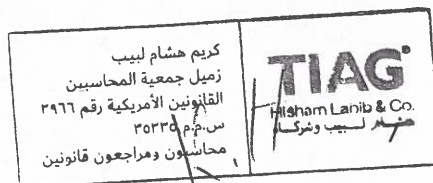 كريم هشام لبيب
زميل جمعية المحاسبين
القانونين الأمريكية رقم ٣٩٦٦
س.م.م ٣٥٢٣٥
محاسبون ومراجعون قانونين
TIAG®
Hisham Labib & Co.
هشام لبيب وشركاه